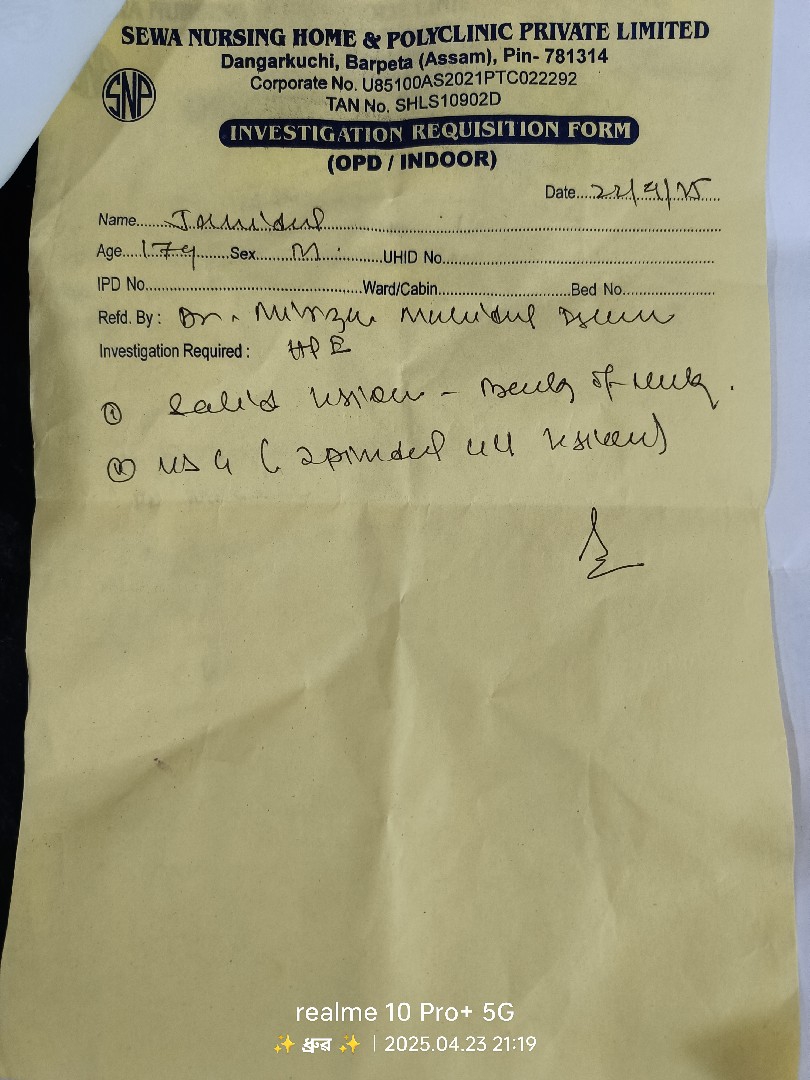 SEWA NURSING HOME & POLYCLINIC PRIVATE LIMITED
Dangarkuchi, Barpeta (Assam), Pin- 781314
Corporate No. U85100AS2021PTC022292
TAN No. SHLS10902D
SNP
INVESTIGATION REQUISITION FORM
(OPD / INDOOR)
Date...22/4/25
Name......
Age....17y......Sex......M.......UHID No.....
IPD No.....Ward/Cabin.....Bed No.....
Refd. By : Dr.
Investigation Required : HPE
① lesion - of neck.
② USG ( cell lesion)
realme 10 Pro+ 5G
✨ ধ্রুৱ ✨ | 2025.04.23 21:19